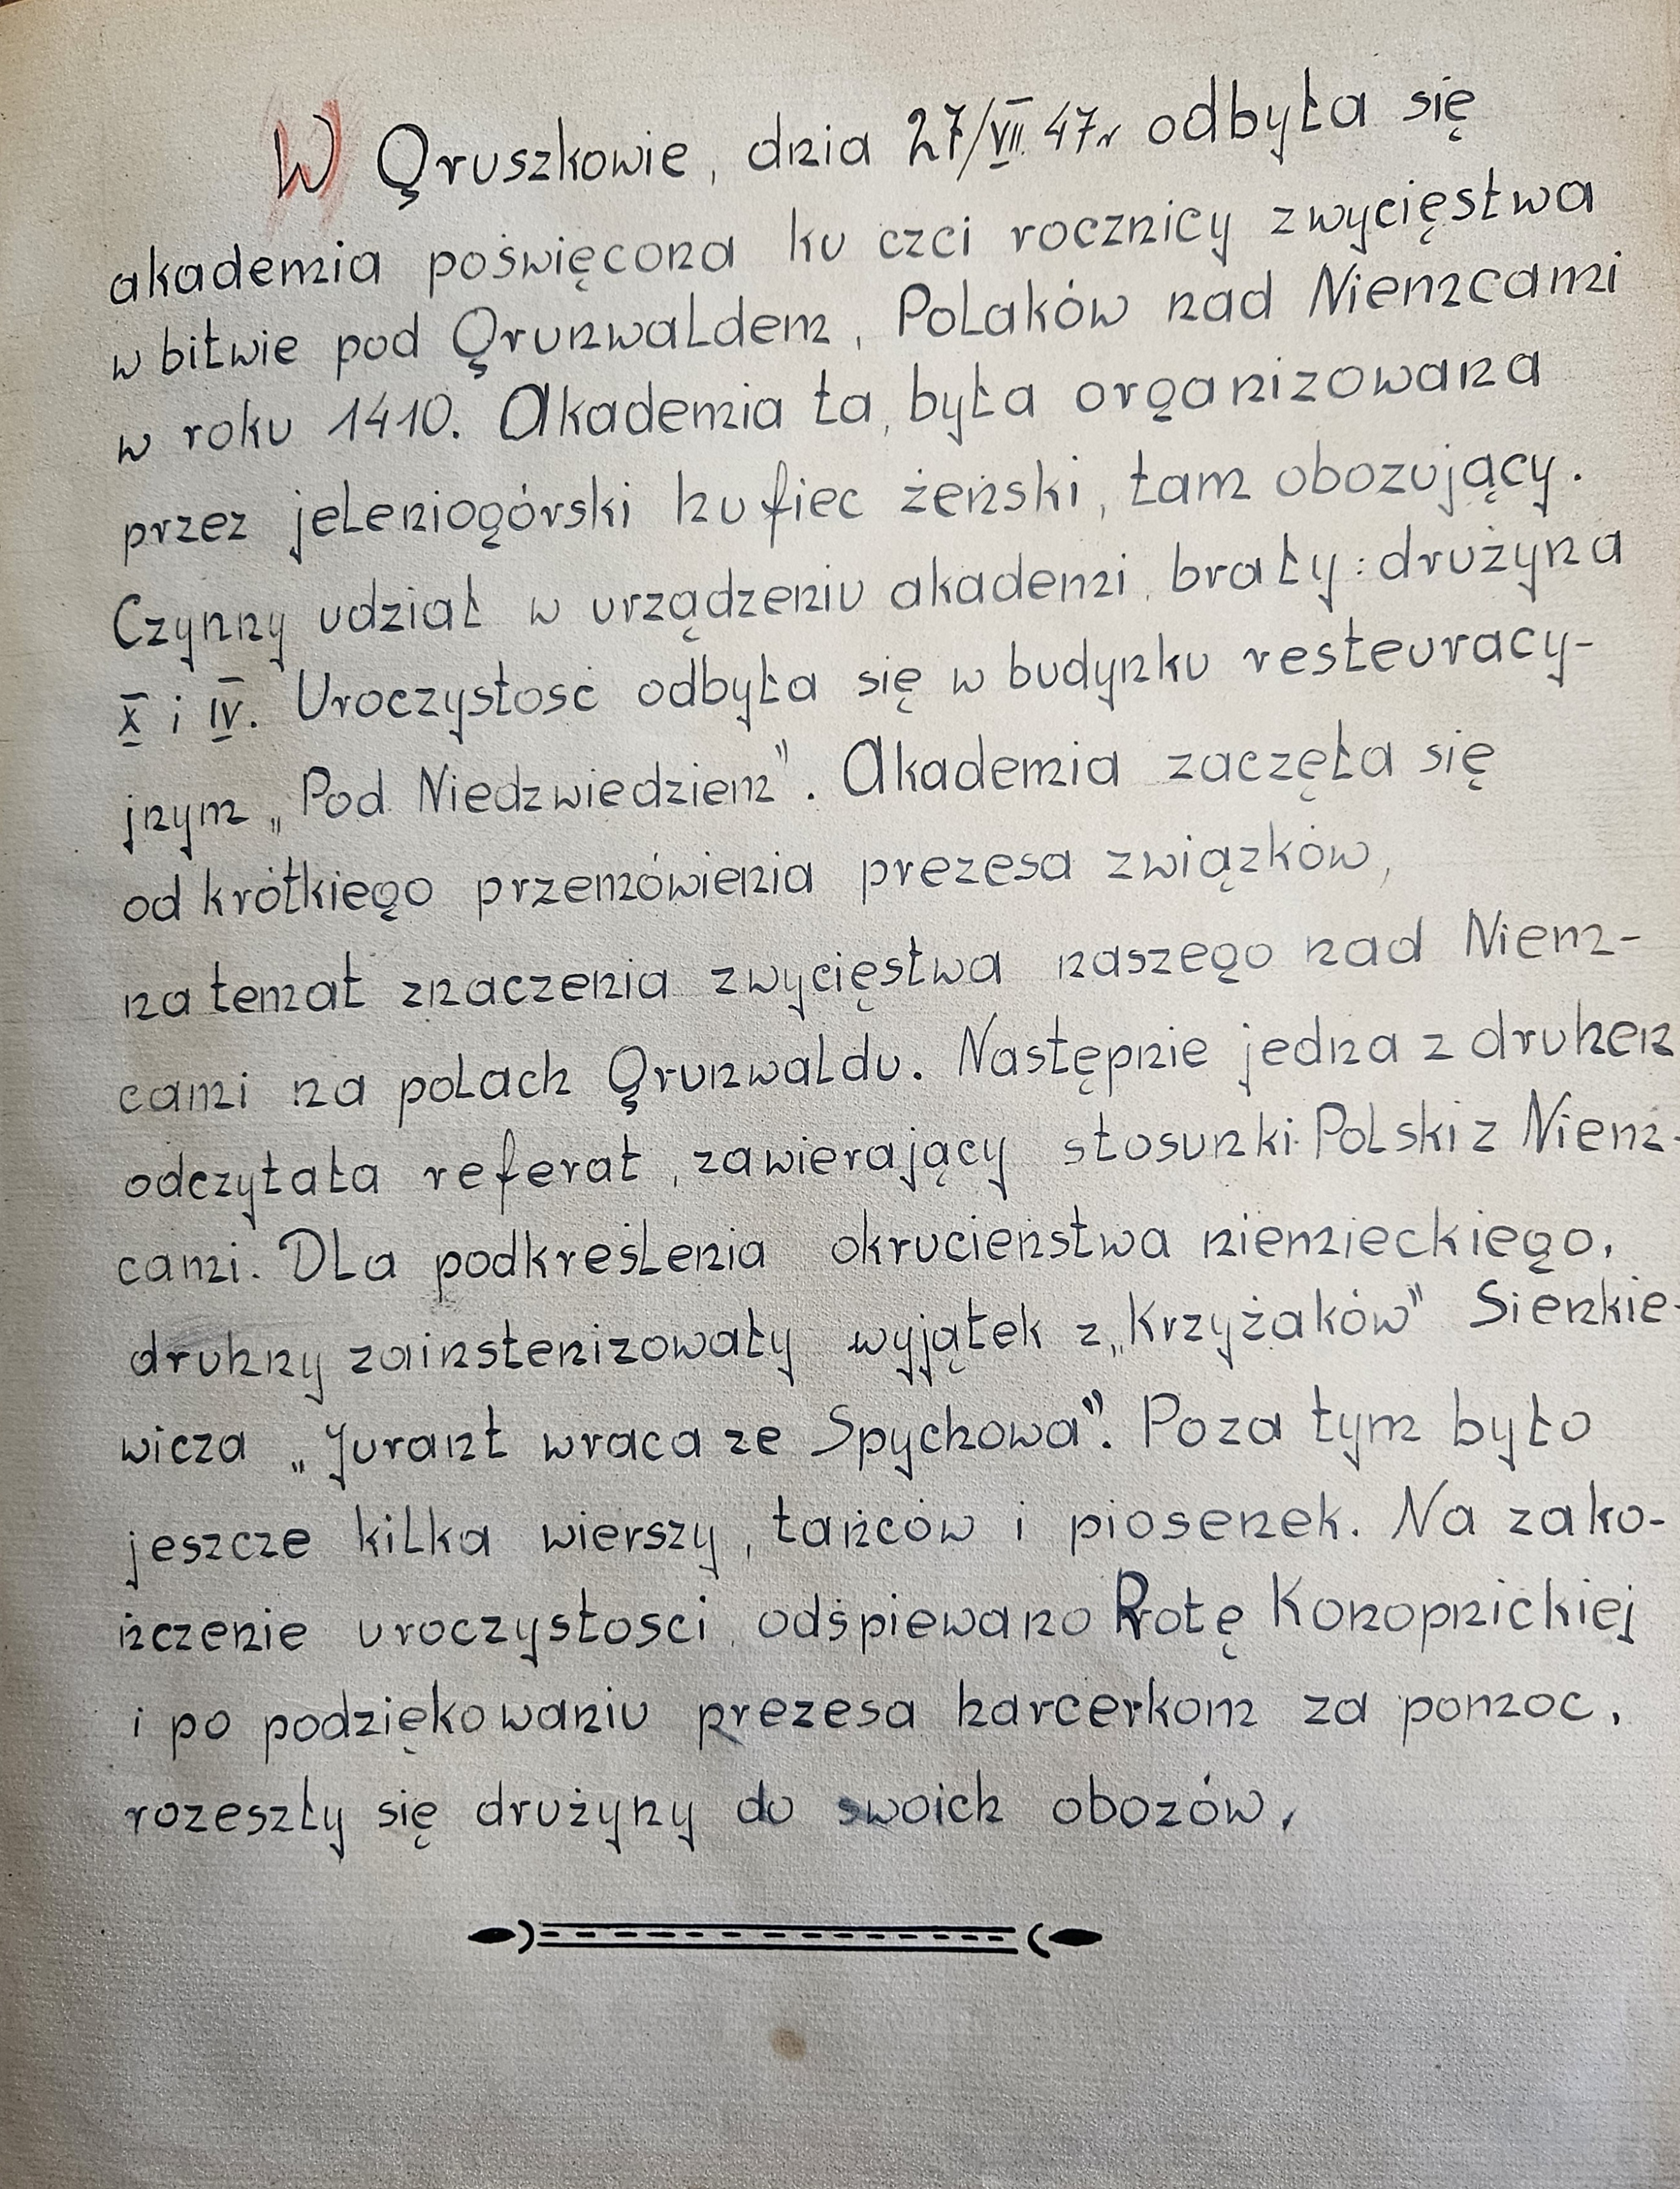 W Gruszkowie, dnia 27/VII 47r odbyła się
akademia poświęcona ku czci rocznicy zwycięstwa
w bitwie pod Grunwaldem, Polaków nad Niemcami
w roku 1410. Akademia ta, była organizowana
przez jeleniogórski hufiec żeński, tam obozujący.
Czynny udział w urządzeniu akademi, brały: drużyna
X i IV. Uroczystość odbyła się w budynku resteuracy-
jnym „Pod Niedzwiedziem". Akademia zaczęła się
od krótkiego przemówienia prezesa związków,
na temat znaczenia zwycięstwa naszego nad Niem-
cami na polach Grunwaldu. Następnie jedna z druhen
odczytała referat, zawierający stosunki Polski z Niem-
cami. Dla podkreślenia okrucieństwa niemieckiego,
druhny zainstenizowały wyjątek z „Krzyżaków" Sienkie-
wicza „Jurant wraca ze Spychowa". Poza tym było
jeszcze kilka wierszy, tańców i piosenek. Na zako-
ńczenie uroczystosci, odśpiewano Rotę Konopnickiej
i po podziękowaniu prezesa harcerkom za pomoc,
rozeszły się drużyny do swoich obozów.